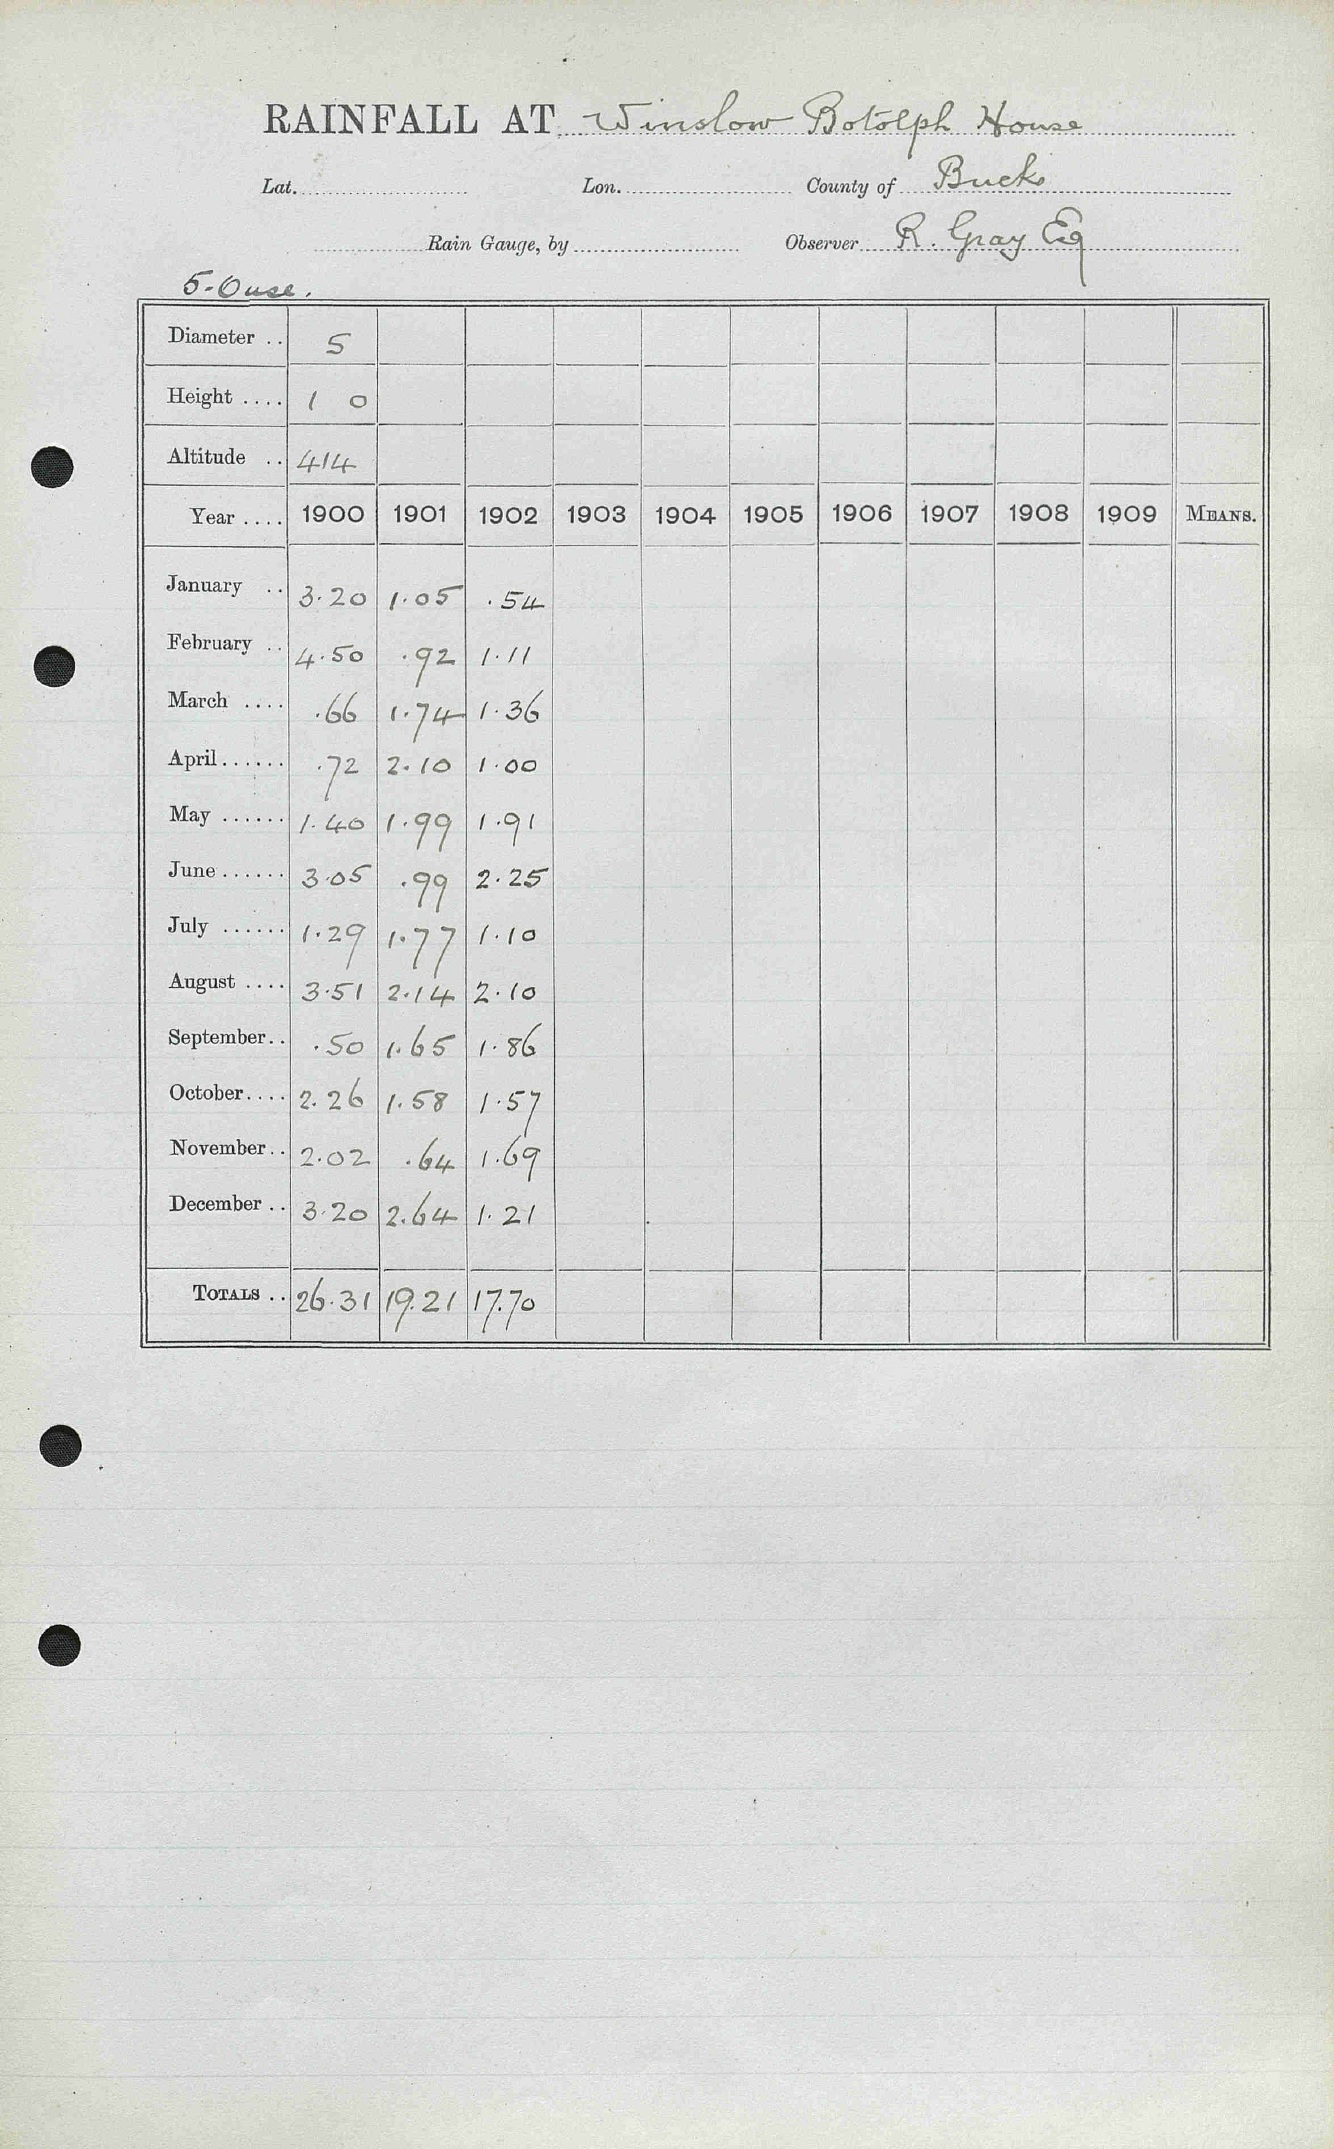 RAINFALL AT Winslow Botolph House
Lat. Lon. County of Bucks
Rain Gauge, by Observer R. Gray Esq
5-Ouse.
Diameter .. 5
Height .... 1 0
Altitude .. 414
Year .... 1900 1901 1902 1903 1904 1905 1906 1907 1908 1909 MEANS.
January .. 3.20 1.05 .54
February .. 4.50 .92 1.11
March .... .66 1.74 1.36
April...... .72 2.10 1.00
May ...... 1.40 1.99 1.91
June...... 3.05 .99 2.25
July ...... 1.29 1.77 1.10
August .... 3.51 2.14 2.10
September.. .50 1.65 1.86
October.... 2.26 1.58 1.57
November.. 2.02 .64 1.69
December .. 3.20 2.64 1.21
TOTALS .. 26.31 19.21 17.70